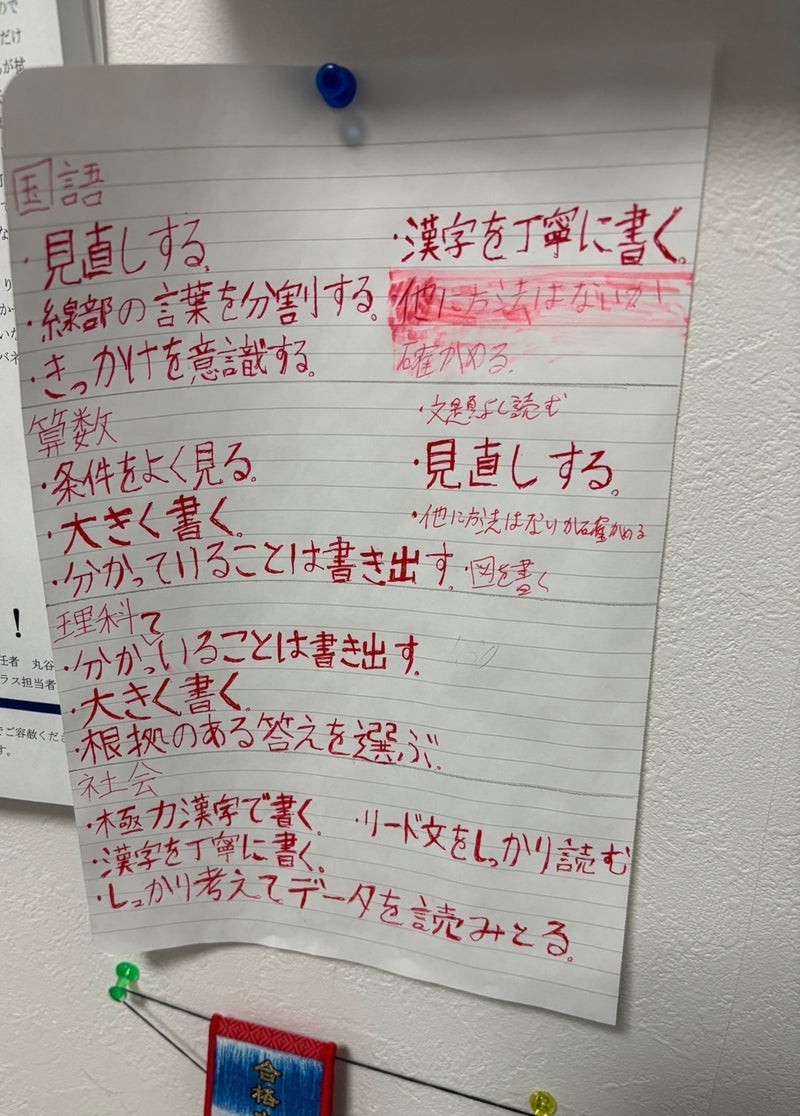 国語
・見直しする。
・線部の言葉を分割する。
・きっかけを意識する。
・漢字を丁寧に書く。
・他に方法はないか
確かめる。
算数
・条件をよく見る。
・大きく書く。
・分かっていることは書き出す。・図を書く
・文題よく読む
・見直しする。
・他に方法はないか確かめる
理科
・分かっていることは書き出す。
・大きく書く。
・根拠のある答えを選ぶ。
社会
・極力漢字で書く。
・漢字を丁寧に書く。
・しっかり考えてデータを読みとる。
・リード文をしっかり読む
合格
！
任者 丸谷
ラス担当者
でご容赦くだ
す。